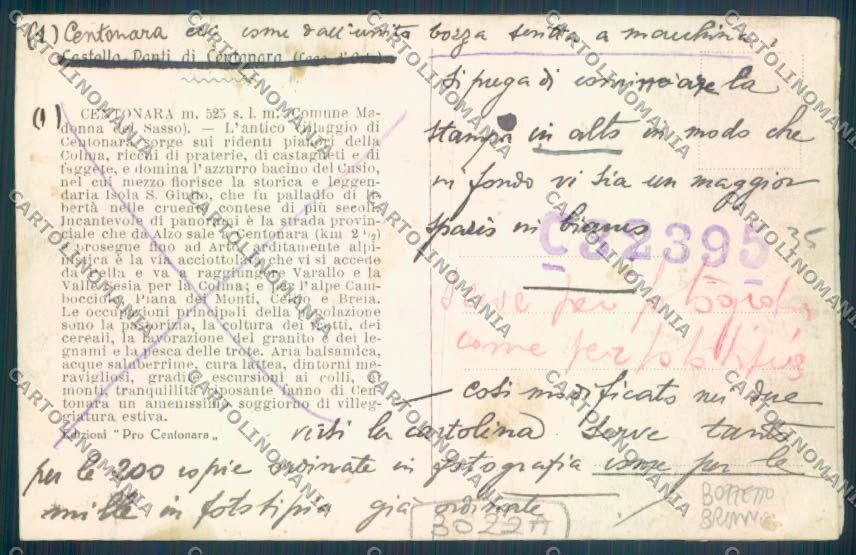 (1) Centonara come dall'unita bozza scritta a macchina.
Castello Conti di Centonara (Lago d'Orta)
(1)
CENTONARA m. 525 s. l. m. (Comune Ma-
donna del Sasso). — L'antico villaggio di
Centonara sorge sui ridenti pianori della
Colma, ricchi di praterie, di castagneti e di
faggete, e domina l'azzurro bacino del Cusio,
nel cui mezzo fiorisce la storica e leggen-
daria Isola S. Giulio, che fu palladio di li-
bertà nelle cruente contese di più secoli.
Incantevole di panorami è la strada provin-
ciale che da Alzo sale a Centonara (km 2 ½)
e prosegue fino ad Artò; arditamente alpi-
nistica è la via acciottolata che vi si accede
da Pella e va a raggiungere Varallo e la
Vallesesia per la Colma; e per l'alpe Cam-
boccio, la Piana dei Monti, Cellio e Breia.
Le occupazioni principali della popolazione
sono la pastorizia, la coltura dei frutti, dei
cereali, la lavorazione del granito e dei le-
gnami e la pesca delle trote. Aria balsamica,
acque saluberrime, cura lattea, dintorni me-
ravigliosi, gradite escursioni ai colli, ai
monti, tranquillità riposante fanno di Cen-
tonara un amenissimo soggiorno di villeg-
giatura estiva.
Edizioni "Pro Centonara"
si prega di cominciare la
stampa in alto in modo che
in fondo vi sia un maggior
spazio in bianco
C32395
35
Serve per fotografia
come per fototipia
— così modificato nei due
versi la cartolina serve tanto
per le 200 copie ordinate in fotografia come per le
mille in fototipia già ordinate
3022A
BOZZETTO
CARTOLINOMANIA